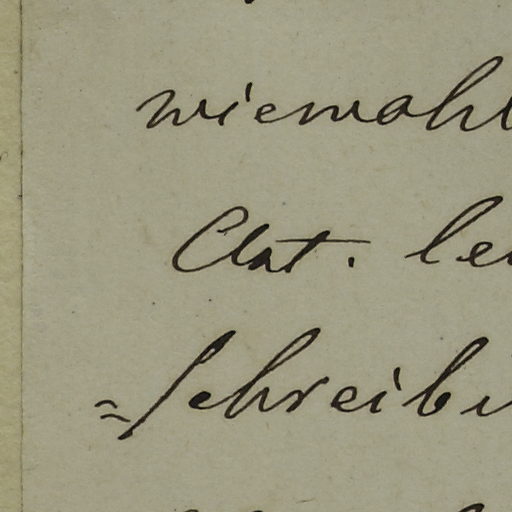 wiewohl
Clat. le
=schreib